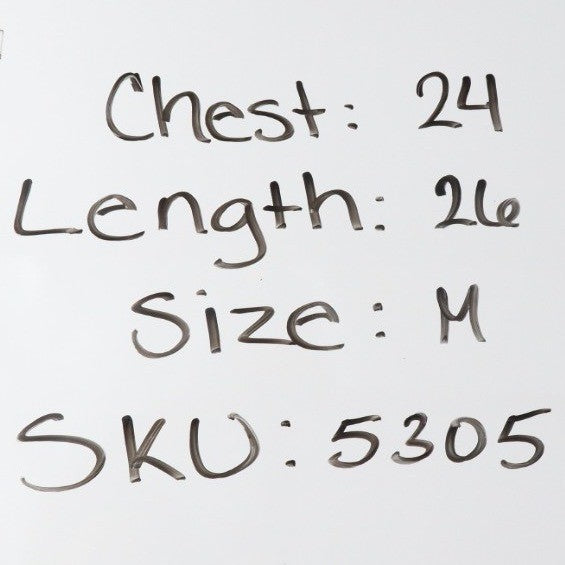 Chest: 24
Length: 26
Size: M
SKU: 5305